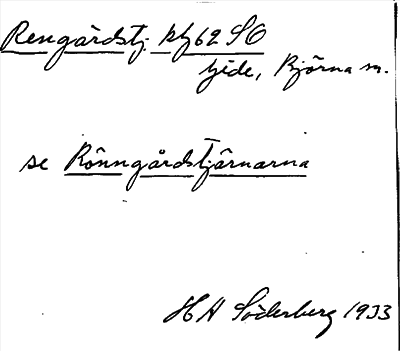 Rengårdstj. kbl 62 SO
Gide, Björna sn.
se Rönngårdstjärnarna
H A Söderberg 1933